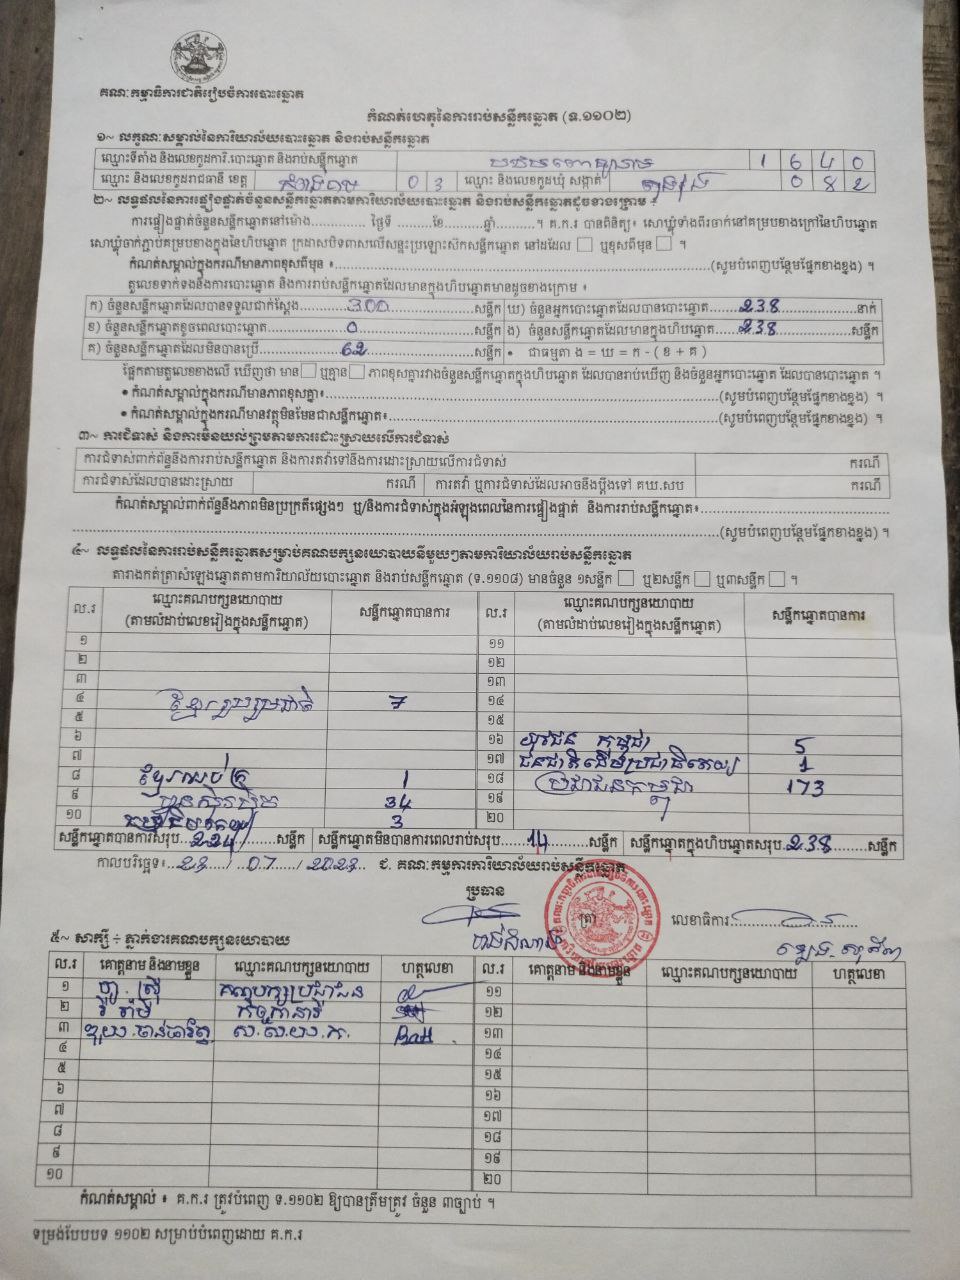 គណៈកម្មាធិការជាតិរៀបចំការបោះឆ្នោត
កំណត់ហេតុនៃការរាប់សន្លឹកឆ្នោត (ទ.១១០២)
១~ លក្ខណៈសម្គាល់នៃការិយាល័យបោះឆ្នោត និងរាប់សន្លឹកឆ្នោត
ឈ្មោះទីតាំង និងលេខកូដការិ.បោះឆ្នោត និងរាប់សន្លឹកឆ្នោត 1 6 4 0
ឈ្មោះ និងលេខកូដរាជធានី ខេត្ត កំពង់ចាម 0 3 ឈ្មោះ និងលេខកូដឃុំ សង្កាត់ 0 8 2
២~ លទ្ធផលនៃការផ្ទៀងផ្ទាត់ចំនួនសន្លឹកឆ្នោតតាមការិយាល័យបោះឆ្នោត និងរាប់សន្លឹកឆ្នោតដូចខាងក្រោម ៖
ការផ្ទៀងផ្ទាត់ចំនួនសន្លឹកឆ្នោតនៅម៉ោង.............. ថ្ងៃទី ........ខែ...........ឆ្នាំ..........។ គ.ក.រ បានពិនិត្យ៖ សោឃ្លុំទាំងពីរចាក់នៅគម្របខាងក្រៅនៃហិបឆ្នោត
សោឃ្លុំចាក់ភ្ជាប់គម្របខាងក្នុងនៃហិបឆ្នោត ក្រដាសបិទពាសលើសន្ទះប្រឡោះស៊កសន្លឹកឆ្នោត នៅដដែល ☐ ឬខុសពីមុន ☐ ។
កំណត់សម្គាល់ក្នុងករណីមានភាពខុសពីមុន ៖..........(សូមបំពេញបន្ថែមផ្នែកខាងខ្នង) ។
តួលេខទាក់ទងនឹងការបោះឆ្នោត និងការរាប់សន្លឹកឆ្នោតដែលមានក្នុងហិបឆ្នោតមានដូចខាងក្រោម ៖
ក) ចំនួនសន្លឹកឆ្នោតដែលបានទទួលជាក់ស្តែង 300 សន្លឹក ឃ) ចំនួនអ្នកបោះឆ្នោតដែលបានបោះឆ្នោត 238 នាក់
ខ) ចំនួនសន្លឹកឆ្នោតខូចពេលបោះឆ្នោត 0 សន្លឹក ង) ចំនួនសន្លឹកឆ្នោតដែលមានក្នុងហិបឆ្នោត 238 សន្លឹក
គ) ចំនួនសន្លឹកឆ្នោតដែលមិនបានប្រើ 62 សន្លឹក • ជាធម្មតា ង = ឃ = ក - ( ខ + គ )
ផ្អែកតាមតួលេខខាងលើ ឃើញថា មាន ☐ ឬគ្មាន ☐ ភាពខុសគ្នារវាងចំនួនសន្លឹកឆ្នោតក្នុងហិបឆ្នោត ដែលបានរាប់ឃើញ និងចំនួនអ្នកបោះឆ្នោត ដែលបានបោះឆ្នោត ។
• កំណត់សម្គាល់ក្នុងករណីមានភាពខុសគ្នា៖..........(សូមបំពេញបន្ថែមផ្នែកខាងខ្នង) ។
• កំណត់សម្គាល់ក្នុងករណីមានវត្ថុមិនមែនជាសន្លឹកឆ្នោត៖..........(សូមបំពេញបន្ថែមផ្នែកខាងខ្នង) ។
៣~ ការជំទាស់ និងការមិនយល់ព្រមតាមការដោះស្រាយលើការជំទាស់
ការជំទាស់ពាក់ព័ន្ធនឹងការរាប់សន្លឹកឆ្នោត និងការតវ៉ាទៅនឹងការដោះស្រាយលើការជំទាស់ ករណី
ការជំទាស់ដែលបានដោះស្រាយ ករណី ការតវ៉ា ឬការជំទាស់ដែលអាចនឹងប្តឹងទៅ គឃ.សប ករណី
កំណត់សម្គាល់ពាក់ព័ន្ធនឹងភាពមិនប្រក្រតីផ្សេងៗ ឬ/និងការជំទាស់ក្នុងអំឡុងពេលនៃការផ្ទៀងផ្ទាត់ និងការរាប់សន្លឹកឆ្នោត៖..........
..........(សូមបំពេញបន្ថែមផ្នែកខាងខ្នង) ។
៤~ លទ្ធផលនៃការរាប់សន្លឹកឆ្នោតសម្រាប់គណបក្សនយោបាយនីមួយៗតាមការិយាល័យរាប់សន្លឹកឆ្នោត
តារាងកត់ត្រាសំឡេងឆ្នោតតាមការិយាល័យបោះឆ្នោត និងរាប់សន្លឹកឆ្នោត (ទ.១១០៨) មានចំនួន ១សន្លឹក ☐ ឬ២សន្លឹក ☐ ឬ៣សន្លឹក ☐ ។
ល.រ ឈ្មោះគណបក្សនយោបាយ (តាមលំដាប់លេខរៀងក្នុងសន្លឹកឆ្នោត) សន្លឹកឆ្នោតបានការ ល.រ ឈ្មោះគណបក្សនយោបាយ (តាមលំដាប់លេខរៀងក្នុងសន្លឹកឆ្នោត) សន្លឹកឆ្នោតបានការ
១ ១១
២ ១២
៣ ១៣
៤ ខ្មែររួបរួមជាតិ 7 ១៤
៥ ១៥
៦ ១៦ យុវជន កម្ពុជា 5
៧ ១៧ ជនជាតិដើមប្រជាធិបតេយ្យ 1
៨ ខ្មែរឈប់ក្រ 1 ១៨ ប្រជាជនកម្ពុជា 173
៩ 34 ១៩
១០ 3 ២០
សន្លឹកឆ្នោតបានការសរុប 224 សន្លឹក សន្លឹកឆ្នោតមិនបានការពេលរាប់សរុប 14 សន្លឹក សន្លឹកឆ្នោតក្នុងហិបឆ្នោតសរុប 238 សន្លឹក
កាលបរិច្ឆេទ៖ 23 / 07 / 2023 ជ. គណៈកម្មការការិយាល័យរាប់សន្លឹកឆ្នោត
ប្រធាន ត្រា លេខាធិការ
៥~ សាក្សី ÷ ភ្នាក់ងារគណបក្សនយោបាយ
ល.រ គោត្តនាម និងនាមខ្លួន ឈ្មោះគណបក្សនយោបាយ ហត្ថលេខា ល.រ គោត្តនាម និងនាមខ្លួន ឈ្មោះគណបក្សនយោបាយ ហត្ថលេខា
១ គណបក្សប្រជាជន ១១
២ ១២
៣ ស.ស.យ.ក. ១៣
៤ ១៤
៥ ១៥
៦ ១៦
៧ ១៧
៨ ១៨
៩ ១៩
១០ ២០
កំណត់សម្គាល់ ៖ គ.ក.រ ត្រូវបំពេញ ទ.១១០២ ឱ្យបានត្រឹមត្រូវ ចំនួន ៣ច្បាប់ ។
ទម្រង់បែបបទ ១១០២ សម្រាប់បំពេញដោយ គ.ក.រ